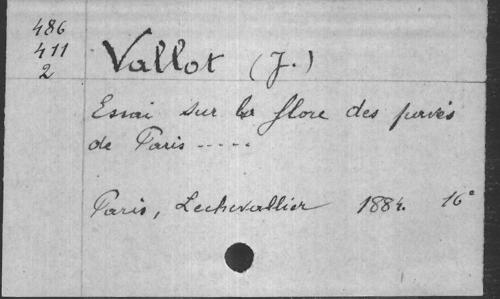 486
411
2
Vallot (J.)
Essai sur la flore des pavés
de Paris -----
Paris, Lechevallier 1884. 16°